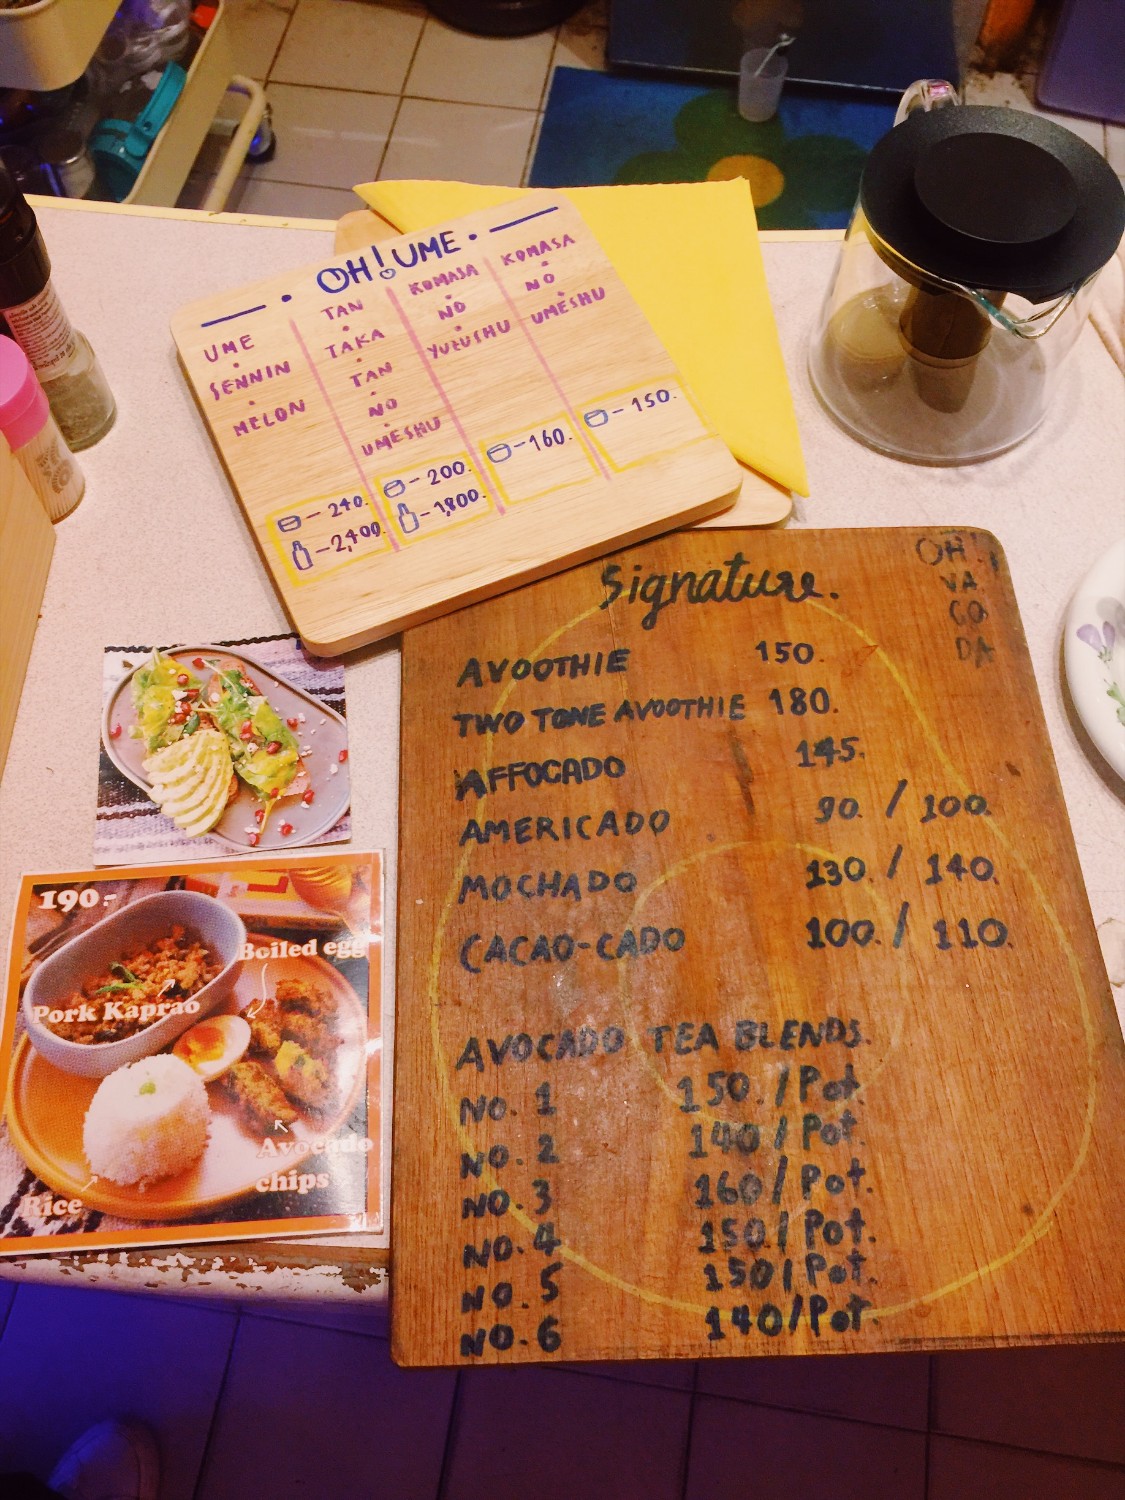 OH! UME
UME
SENNIN
MELON
- 240.
- 2,400.
TAN
TAKA
TAN
NO
UMESHU
- 200.
- 1,800.
KOMASA
NO
YUZUSHU
- 160.
KOMASA
NO
UMESHU
- 150.
OH!
VA
CO
DA
Signature.
AVOOTHIE 150.
TWO TONE AVOOTHIE 180.
AFFOCADO 145.
AMERICADO 90. / 100.
MOCHADO 130. / 140.
CACAO-CADO 100. / 110.
AVOCADO TEA BLENDS.
NO. 1 150. / Pot.
NO. 2 140 / Pot.
NO. 3 160 / Pot.
NO. 4 150 / Pot.
NO. 5 150 / Pot.
NO. 6 140 / Pot.
190.-
Boiled egg
Pork Kaprao
Avocado
chips
Rice